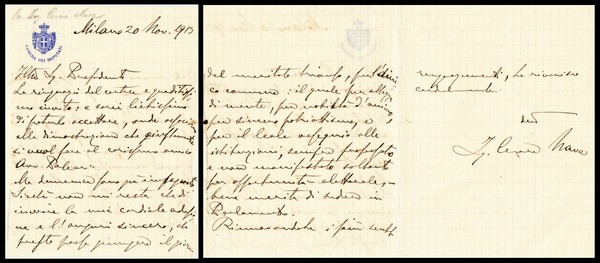 On. Ing. Cesare Nava
Milano 20 Nov. 1913
CAMERA DEI DEPUTATI
Ill.mo Sg. Presidente
La ringrazio del cortese e gradito
mo invito; e sarei lietissimo
di poterlo accettare, onde
alla dimostrazione che giustamente
si vuol fare al carissimo amico
Avv.
Ma domenica sono già impegnato
Sicché non mi resta che di
inviare la mia cordiale adesio
ne e l'augurio sincero, che
presto possa giungere il giorno
del meritato trionfo, per l'ami
co comune: il quale per altezza
di mente, per nobiltà d'animo
per sincero patriottismo, e
per il leale ossequio alle
istituzioni, sempre professato
e non manifestato soltanto
per opportunità elettorale,
bene merita di sedere in
Parlamento.
Rinnovandole i più sentiti
ringraziamenti, La riverisco
cordialmente.
dev
Ig. Cesare Nava